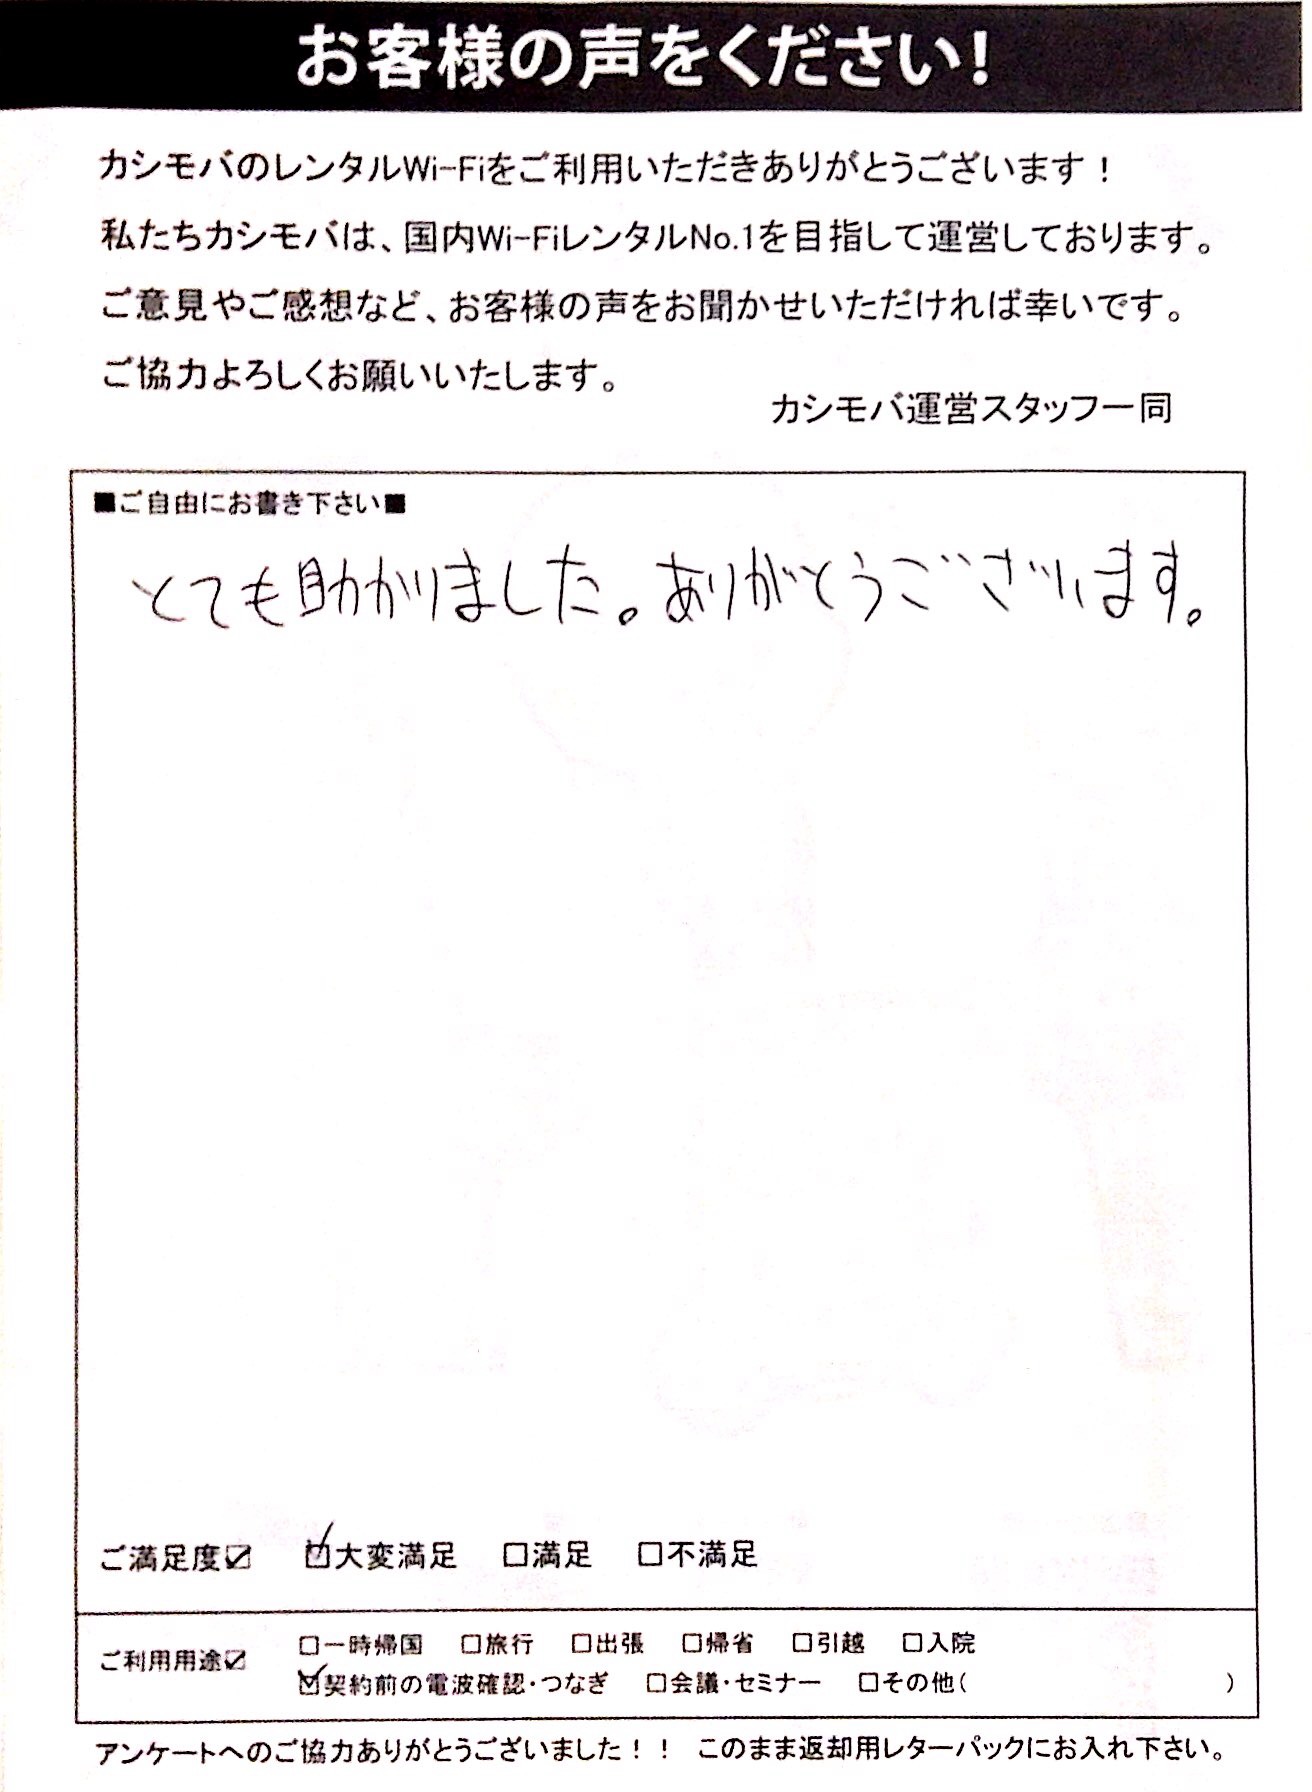 お客様の声をください!
カシモバのレンタルWi-Fiをご利用いただきありがとうございます!
私たちカシモバは、国内Wi-FiレンタルNo.1を目指して運営しております。
ご意見やご感想など、お客様の声をお聞かせいただければ幸いです。
ご協力よろしくお願いいたします。
カシモバ運営スタッフ一同
■ご自由にお書き下さい■
とても助かりました。ありがとうございます。
ご満足度☑ ☑大変満足 □満足 □不満足
ご利用用途☑ □一時帰国 □旅行 □出張 □帰省 □引越 □入院
☑契約前の電波確認・つなぎ □会議・セミナー □その他( )
アンケートへのご協力ありがとうございました!! このまま返却用レターパックにお入れ下さい。